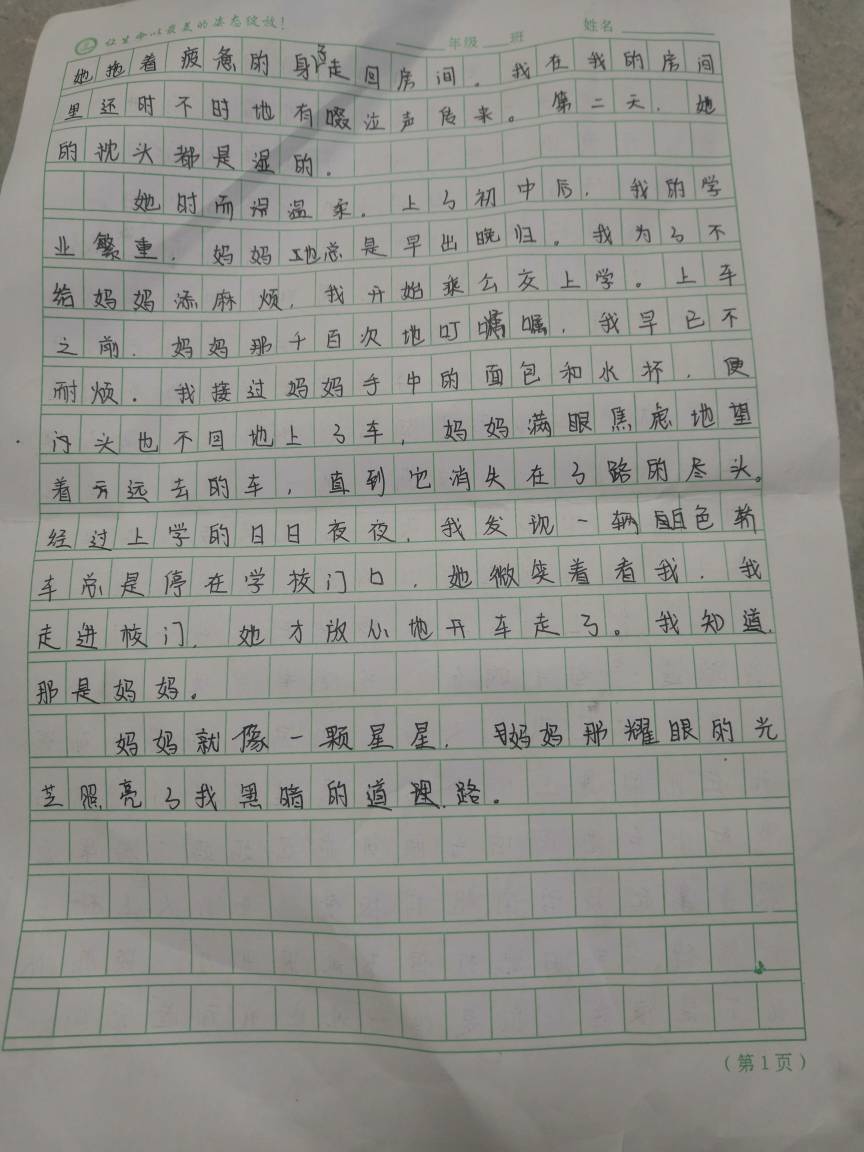 让生命以最美的姿态绽放！
年级 班 姓名
她拖着疲惫的身子走回房间。我在我的房间
里还时不时地有啜泣声传来。第二天，她
的枕头都是湿的。
她时而很温柔。上了初中后，我的学
业繁重，妈妈她总是早出晚归。我为了不
给妈妈添麻烦，我开始乘公交上学。上车
之前，妈妈那千百次地叮嘱嘱，我早已不
耐烦。我接过妈妈手中的面包和水杯，便
头也不回地上了车，妈妈满眼焦虑地望
着远去的车，直到它消失在了路的尽头。
经过上学的日日夜夜，我发现一辆白色轿
车总是停在学校门口，她微笑着看我，我
走进校门，她才放心地开车走了。我知道，
那是妈妈。
妈妈就像一颗星星，妈妈那耀眼的光
芝照亮了我黑暗的道理路。
（第1页）